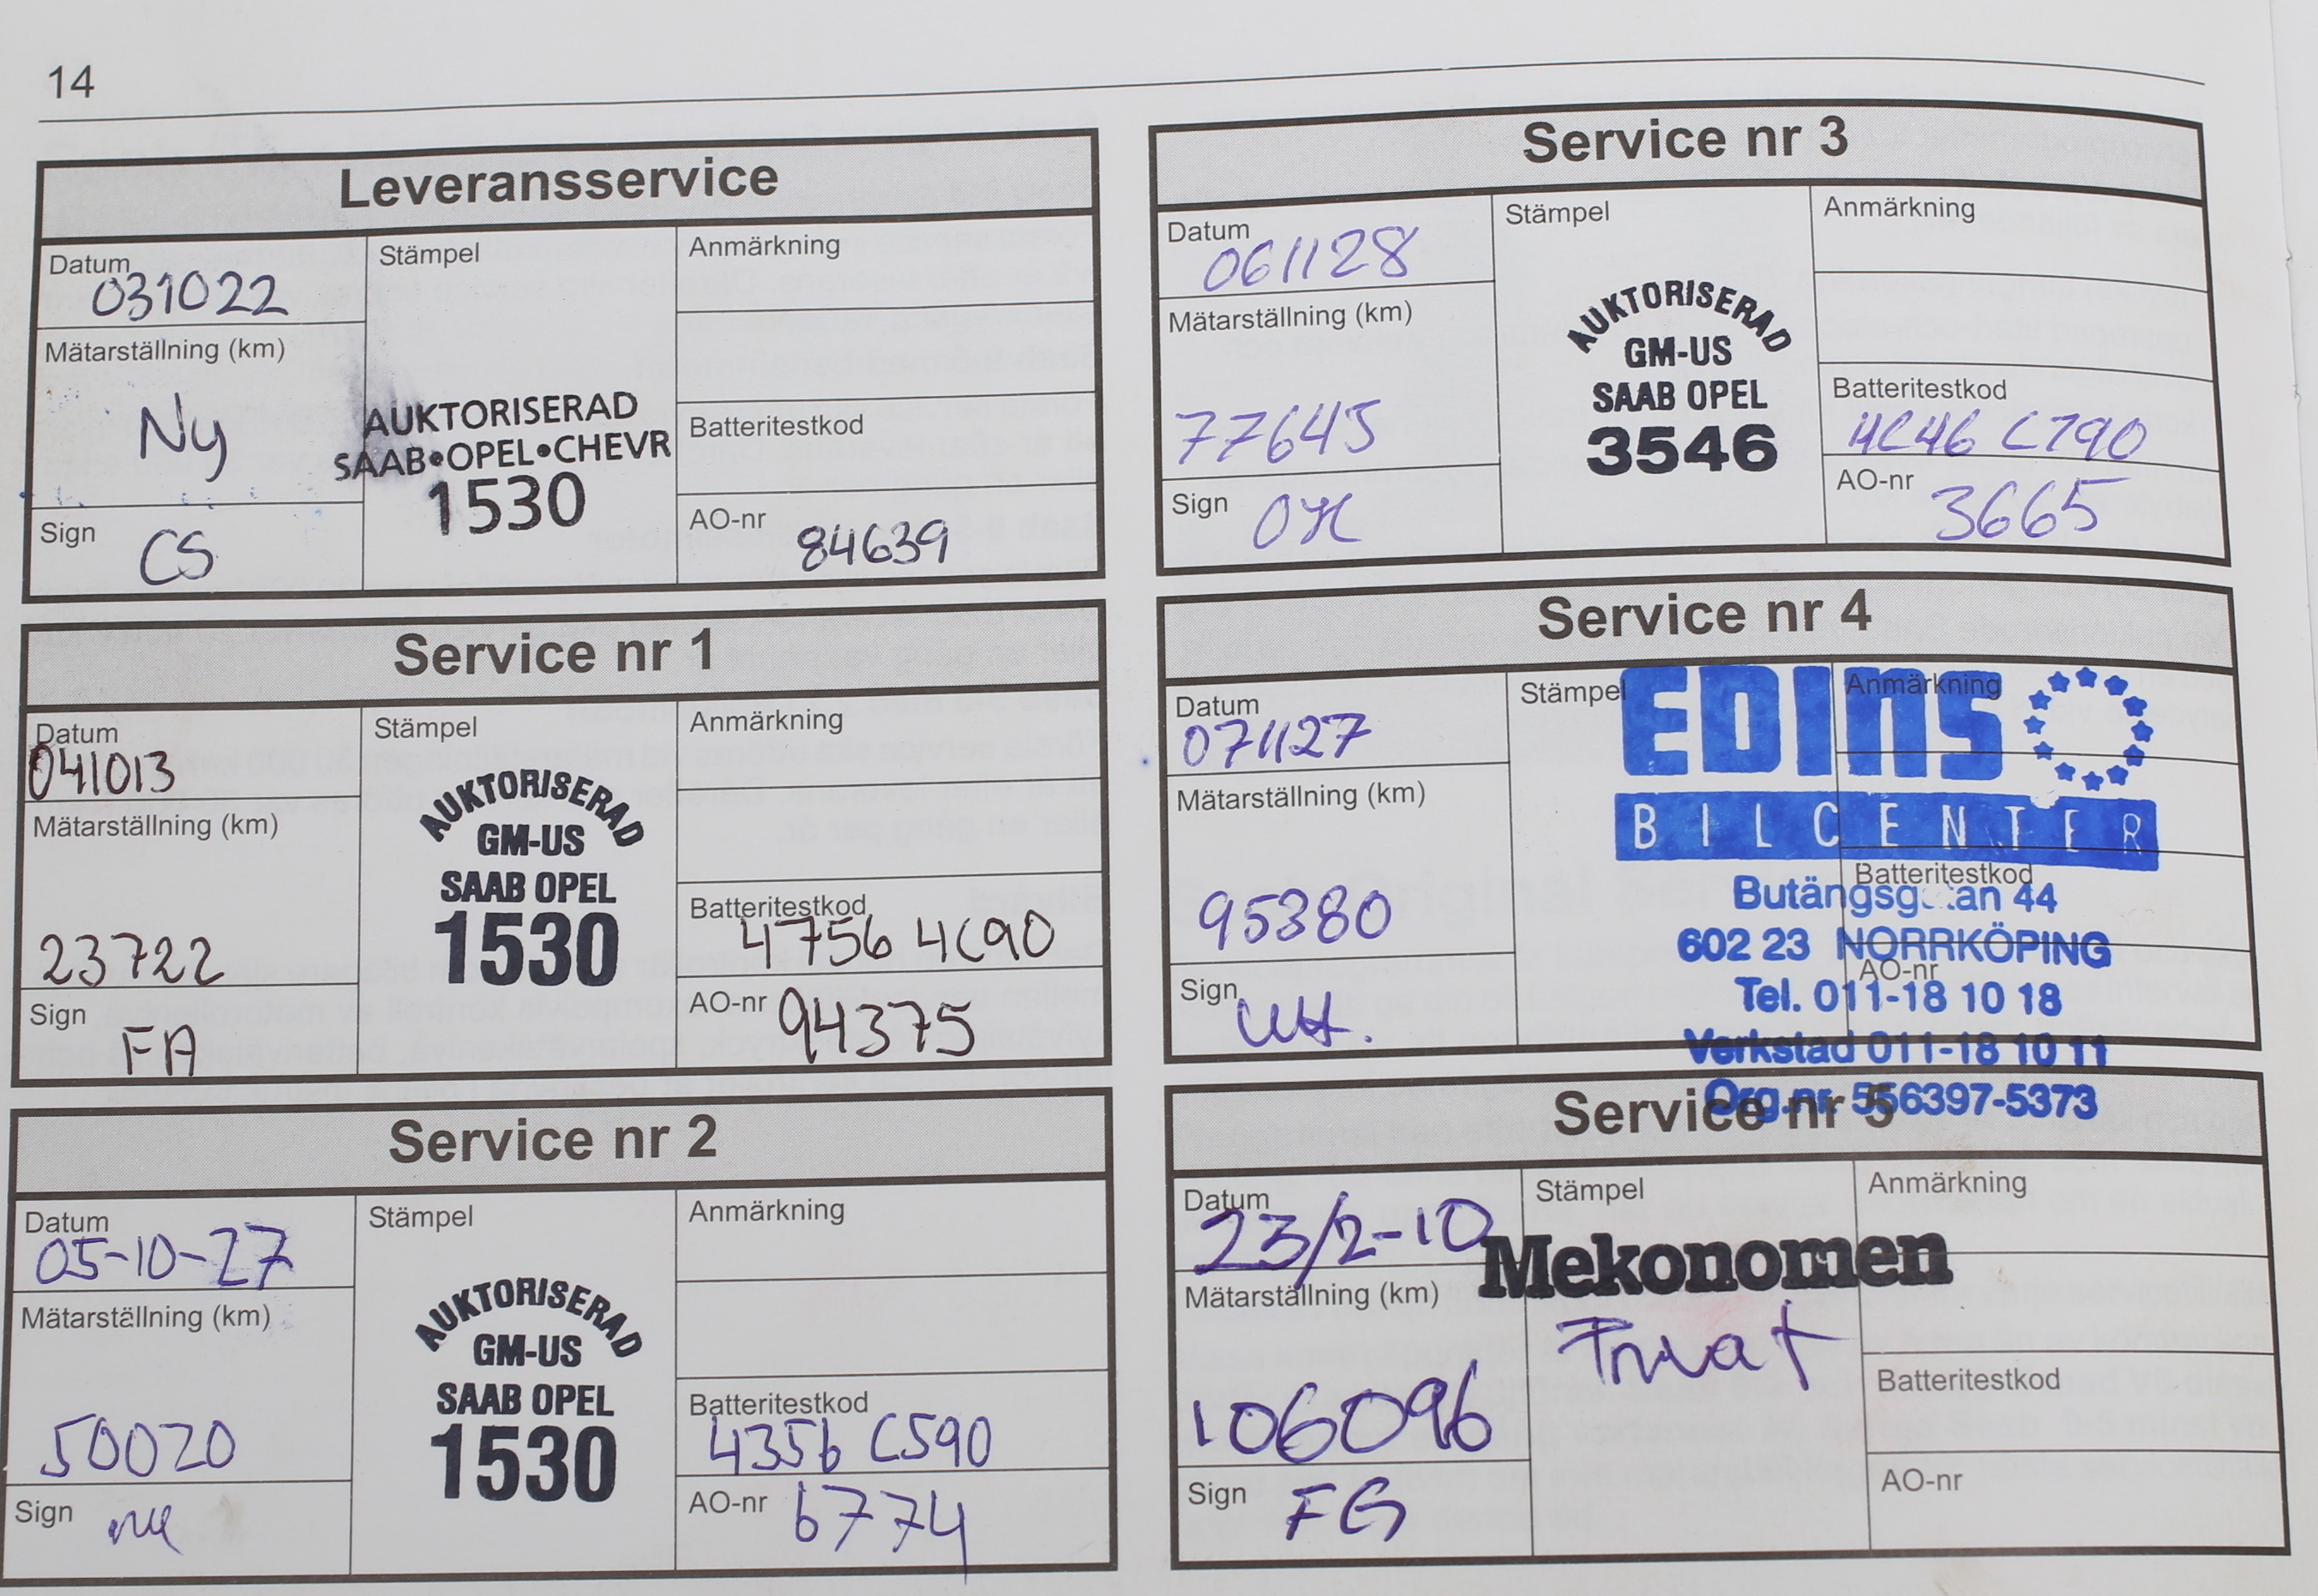 14
Leveransservice
Datum
031022
Mätarställning (km)
Ny
Sign
CS
Stämpel
AUKTORISERAD
SAAB•OPEL•CHEVR
1530
Anmärkning
Batteritestkod
AO-nr
84639
Service nr 1
Datum
041013
Mätarställning (km)
23722
Sign
FA
Stämpel
AUKTORISERAD
GM-US
SAAB OPEL
1530
Anmärkning
Batteritestkod
4756 4C90
AO-nr
94375
Service nr 2
Datum
05-10-27
Mätarställning (km)
50020
Sign
Stämpel
AUKTORISERAD
GM-US
SAAB OPEL
1530
Anmärkning
Batteritestkod
4356 C590
AO-nr
6774
Service nr 3
Datum
061128
Mätarställning (km)
77645
Sign
Stämpel
AUKTORISERAD
GM-US
SAAB OPEL
3546
Anmärkning
Batteritestkod
4C46 C790
AO-nr
3665
Service nr 4
Datum
071127
Mätarställning (km)
95380
Sign
Stämpel
Anmärkning
Batteritestkod
AO-nr
EDINS
BILCENTER
44
602 23 NORRKÖPING
Tel. 011-18 10 18
Verkstad 011-18 10 11
Org.nr. 556397-5373
Service nr 5
Datum
23/2-10
Mätarställning (km)
106096
Sign
FG
Stämpel
Mekonomen
Privat
Anmärkning
Batteritestkod
AO-nr